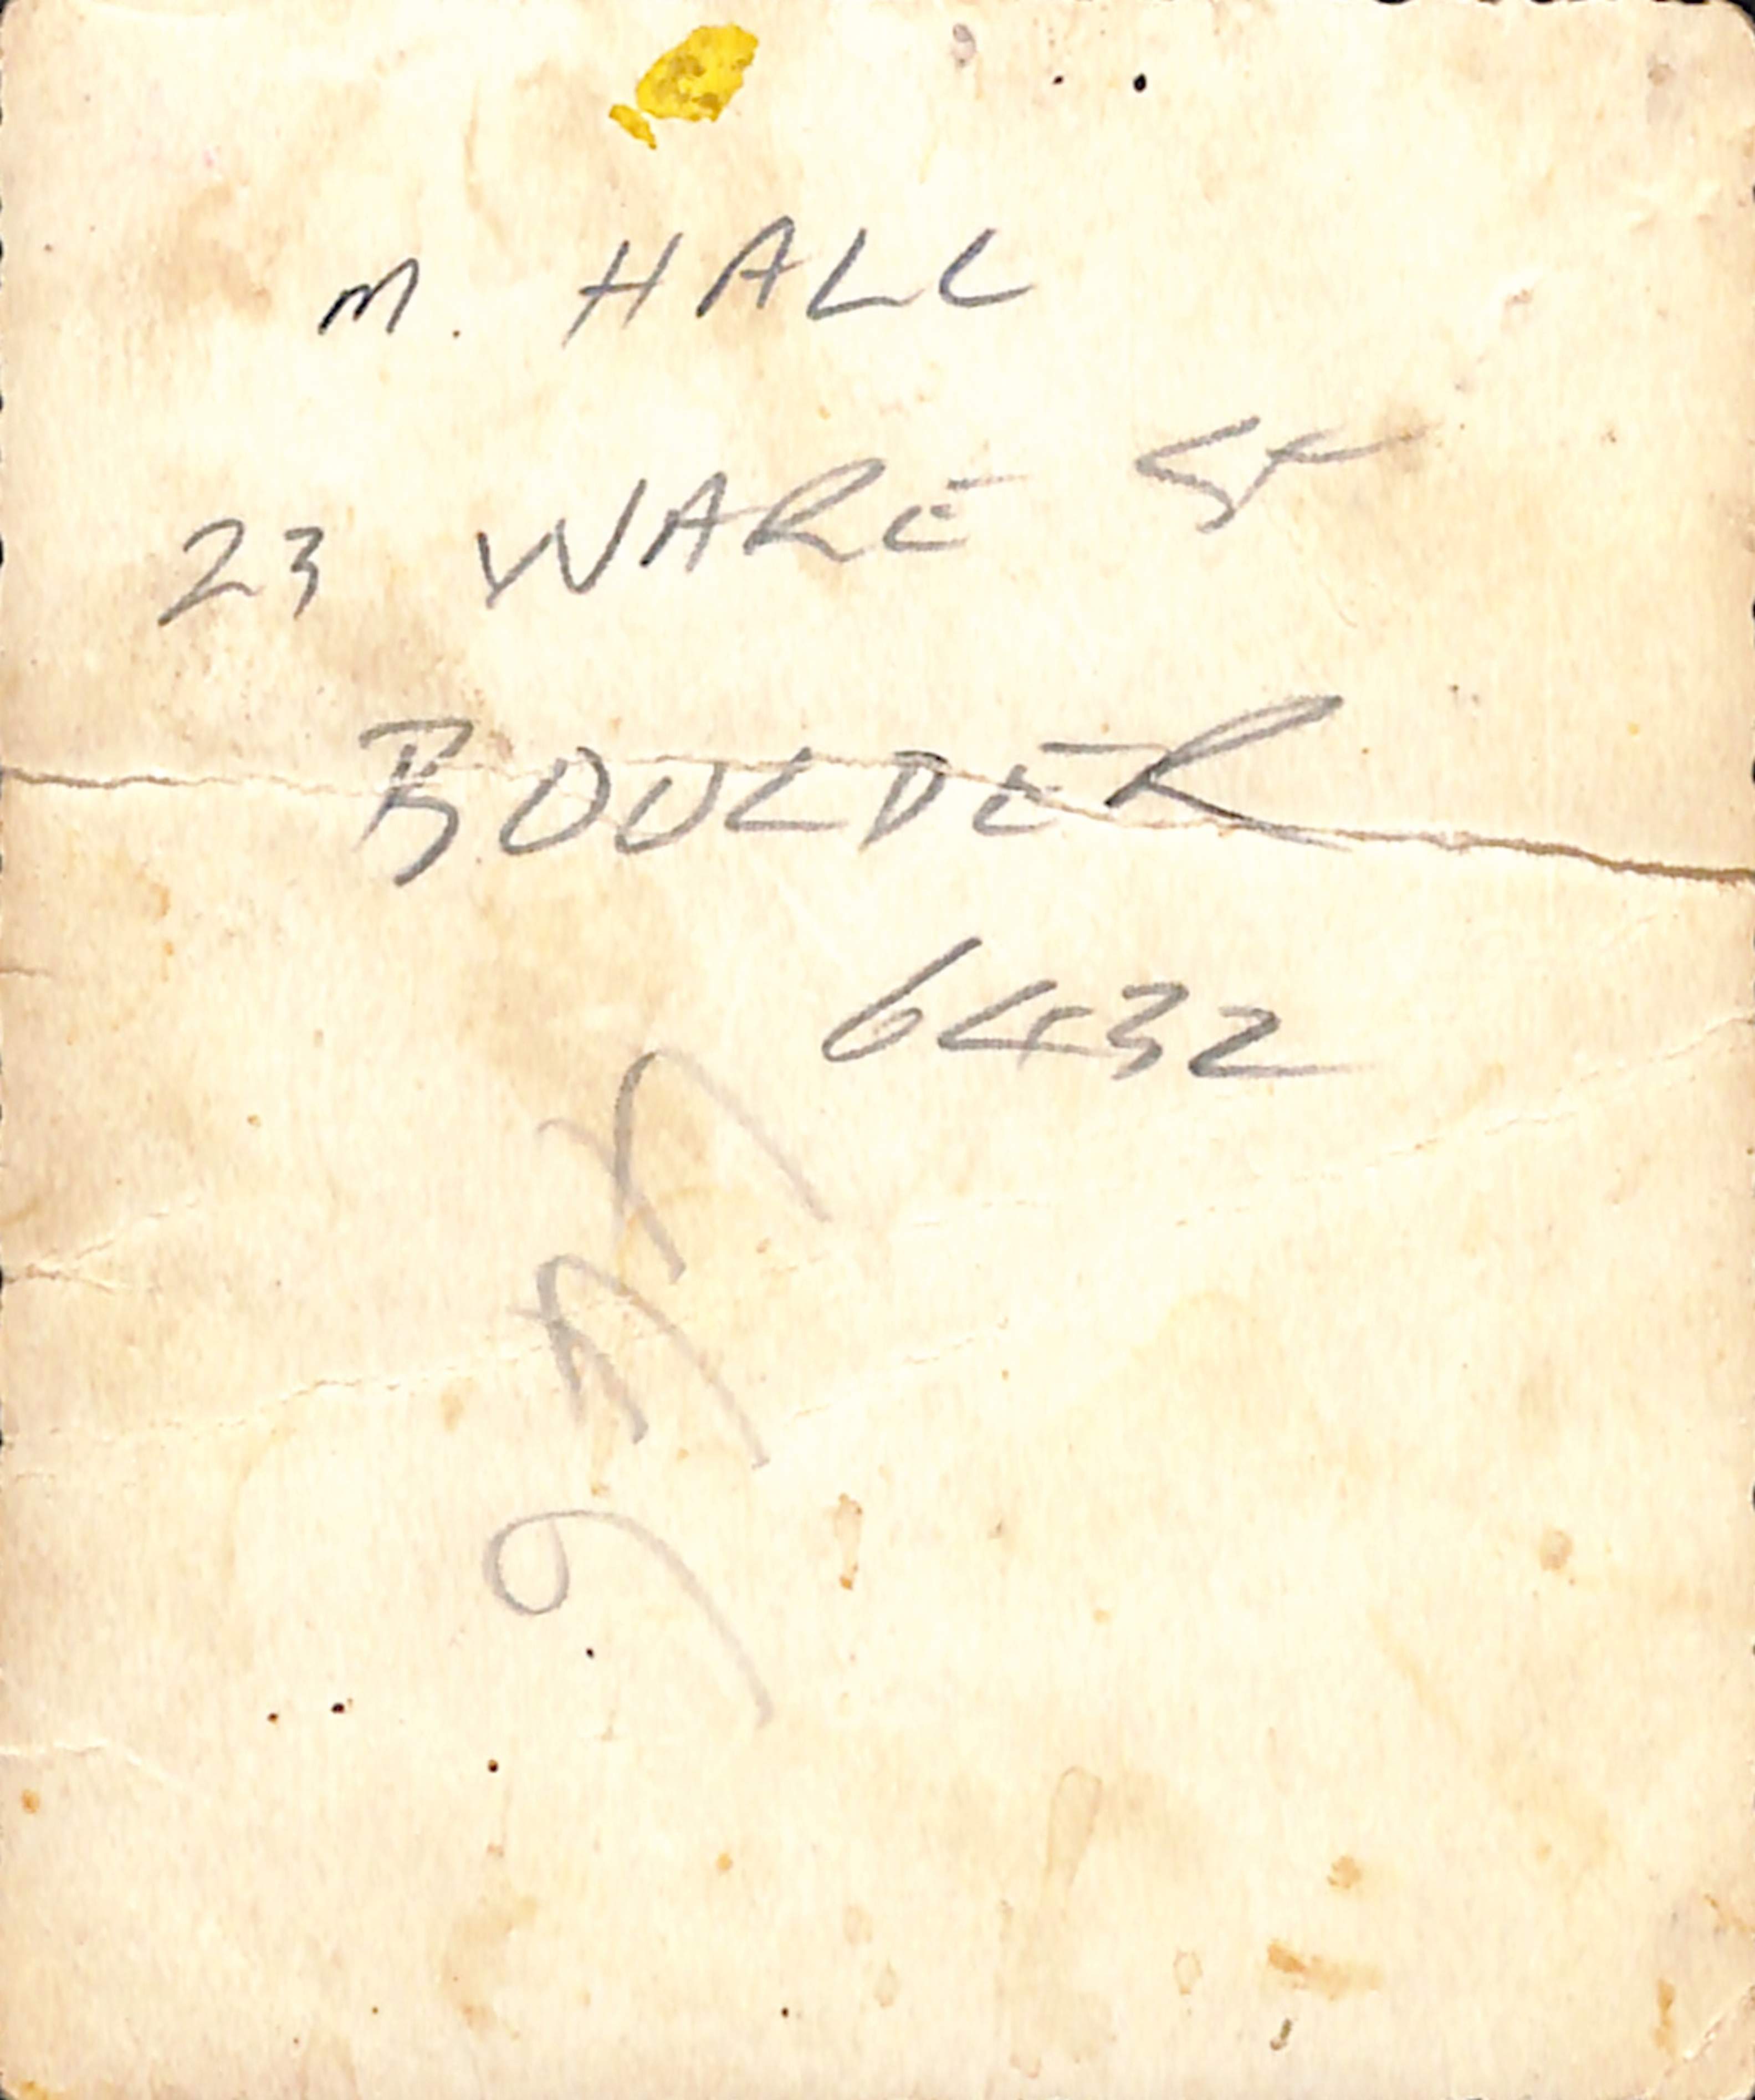 M. HALL
23 WARE St
BOULDER
6432